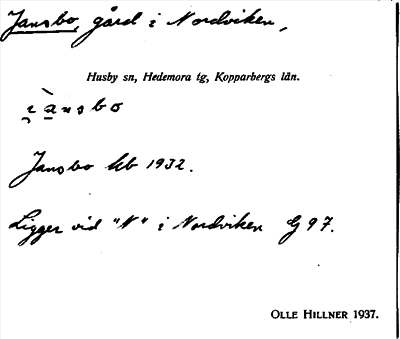 Jansbo, gård i Nordviken,
Husby sn, Hedemora tg, Kopparbergs län.
i̯ànsbo
Jansbo kb 1932.
Ligger vid "N" i Nordviken G 97.
OLLE HILLNER 1937.